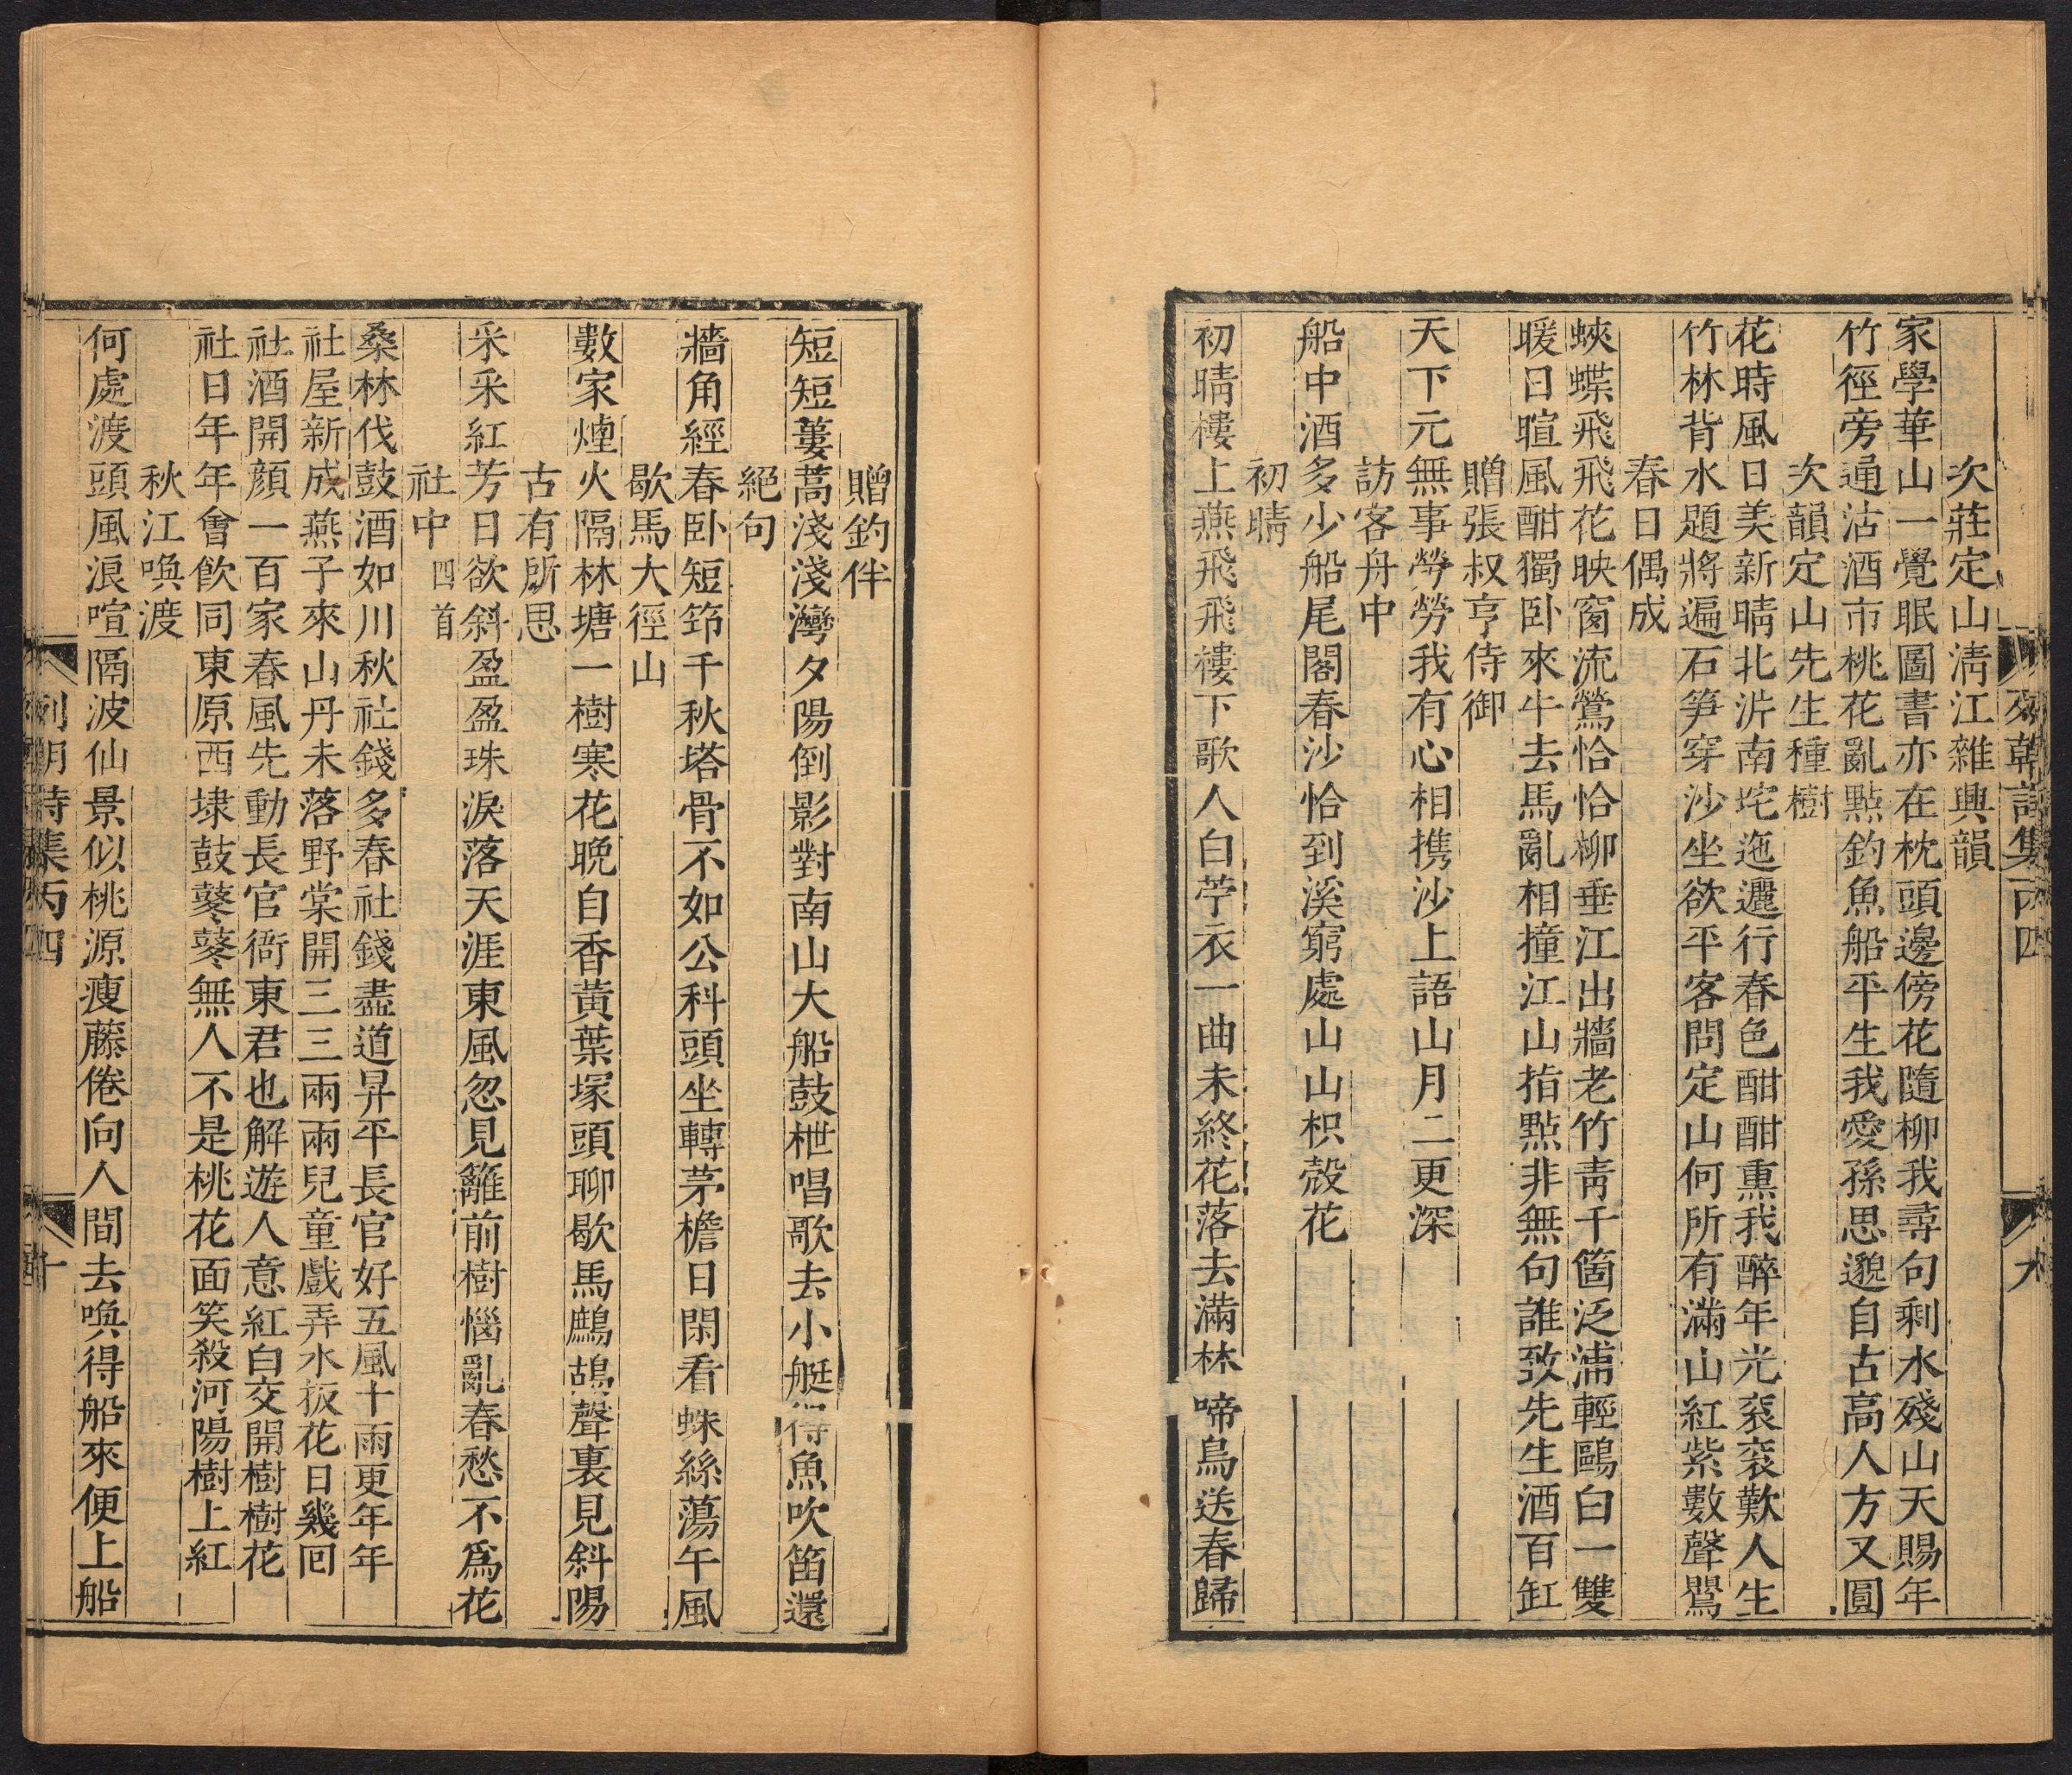 次莊定山淸江雜興韻
家學華山一覺眠圖書亦在枕頭邊傍花隨柳我尋句剩水殘山天賜年
竹徑旁通沽酒市桃花亂點釣魚船平生我愛孫思邈自古高人方又圓
次韻定山先生種樹
花時風日美新晴北泋南垞迤邐行春色酣酣熏我醉年光衮衮歎人生
竹林背水題將遍石笋穿沙坐欲平客問定山何所有滿山紅紫數聲鸎
春日偶成
蛺蝶飛飛花映窗流鶯恰恰柳垂江出牆老竹靑千箇泛浦輕鷗白一雙
暖日暄風酣獨卧來牛去馬亂相撞江山指點非無句誰致先生酒百缸
贈張叔亨侍御
天下元無事勞勞我有心相携沙上語山月二更深
訪客舟中
船中酒多少船尾閣春沙恰到溪窮處山山枳殻花
初晴
初晴樓上燕飛飛樓下歌人白苧衣一曲未終花落去滿林啼鳥送春歸
贈釣伴
短短蔞蒿淺淺灣夕陽倒影對南山大船鼓枻唱歌去小艇得魚吹笛還
絕句
牆角經春卧短筇千秋塔骨不如公科頭坐轉茅檐日閑看蛛絲蕩午風
歇馬大徑山
數家煙火隔林塘一樹寒花晚自香黃葉塚頭聊歇馬鷓鴣聲裏見斜陽
古有所思
采采紅芳日欲斜盈盈珠淚落天涯東風忽見籬前樹惱亂春愁不爲花
社中 四首
桑林伐鼓酒如川秋社錢多春社錢盡道昇平長官好五風十雨更年年
社屋新成燕子來山丹未落野棠開三三兩兩兒童戲弄水扳花日幾回
社酒開顔一百家春風先動長官衙東君也解遊人意紅白交開樹樹花
社日年年會飮同東原西埭鼓鼕鼕無人不是桃花面笑殺河陽樹上紅
秋江喚渡
何處渡頭風浪喧隔波仙景似桃源瘦藤倦向人間去喚得船來便上船
列朝詩集丙四
十